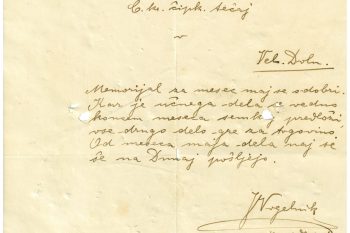 C. kr. čipk. tečaj
v
Vel. Doln.
Memorijal za mesec maj se odobri.
Kar je učnega dela se vedno
koncem meseca semkaj predloži,
vse drugo delo gre za trgovino.
Od meseca maja dela naj se
še na Dunaj pošljejo.
J Vogelnik